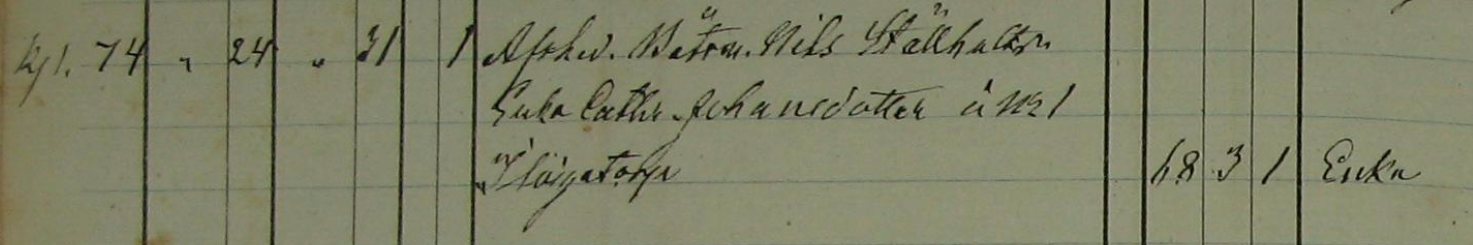 kyl. 74 " 24 " 31 1 Afsked. Båtsm. Nils Ställhalts
Enka Cathr. Johansdotter å N:o 1
68 3 1 Enka